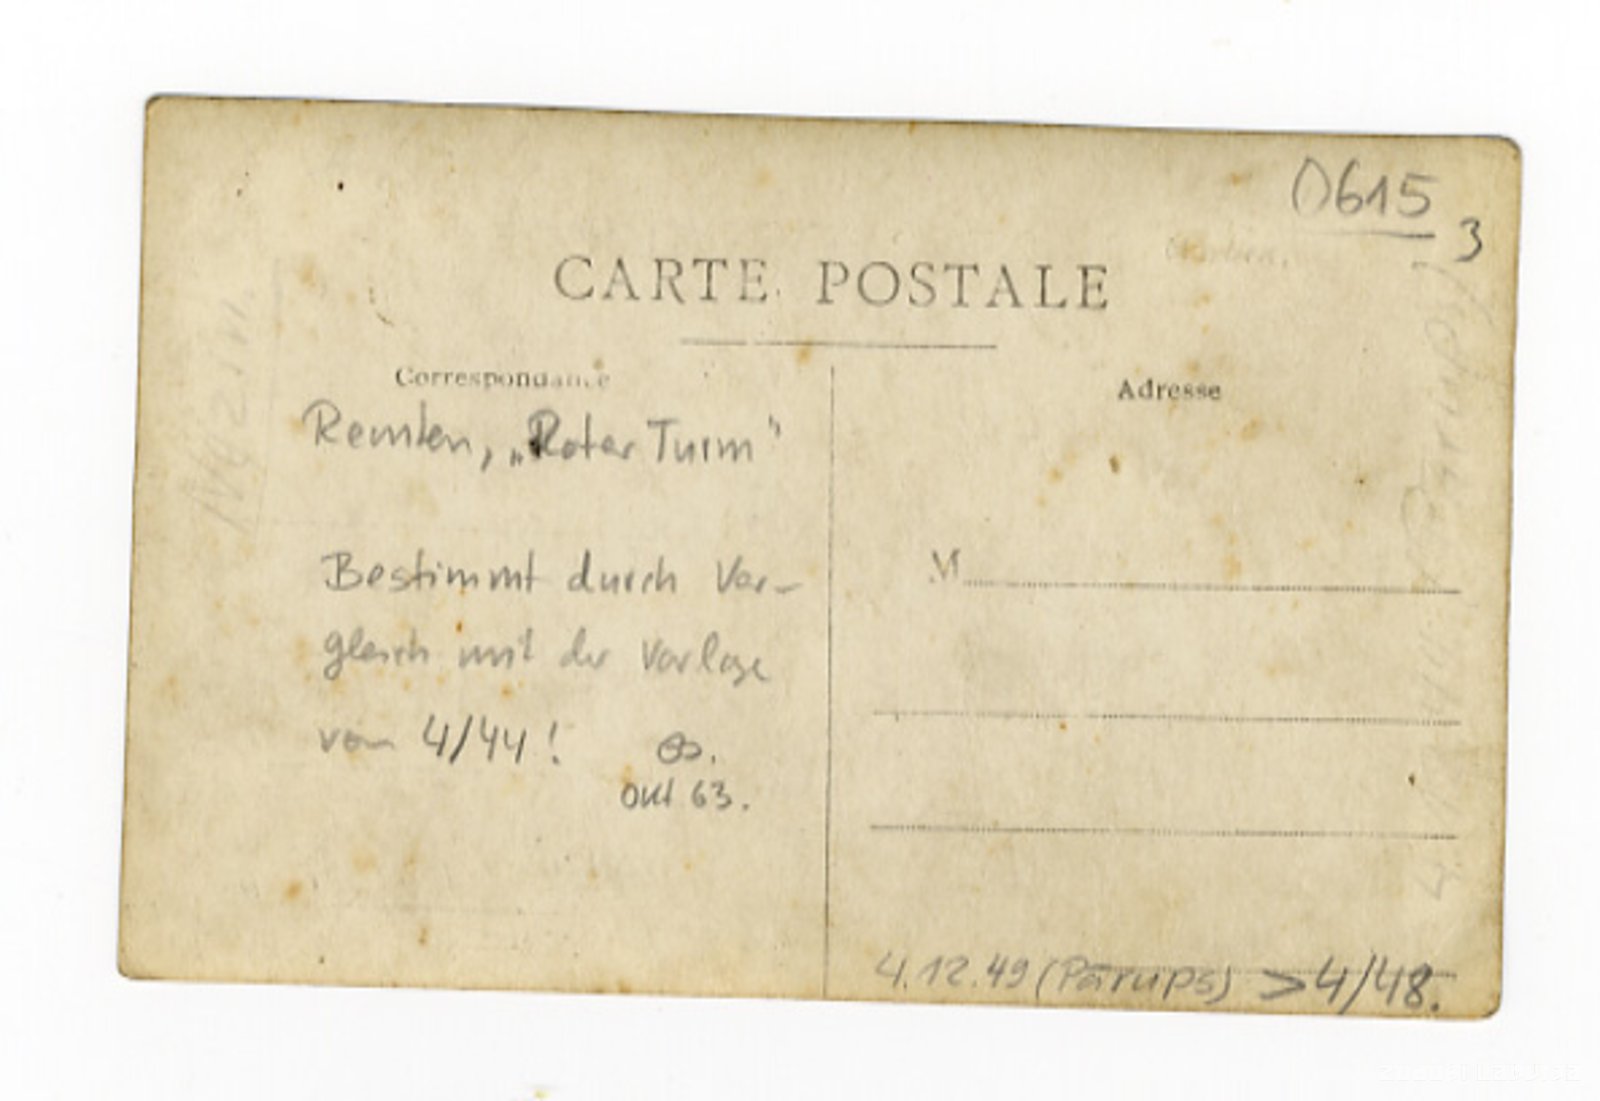 0615
3
CARTE POSTALE
Correspondance
Adresse
Remten, „Roter Turm"
Bestimmt durch Ver-
gleich mit der Vorlage
vom 4/44!
Okt 63.
M
4.12.49 (Pārups) > 4/48.